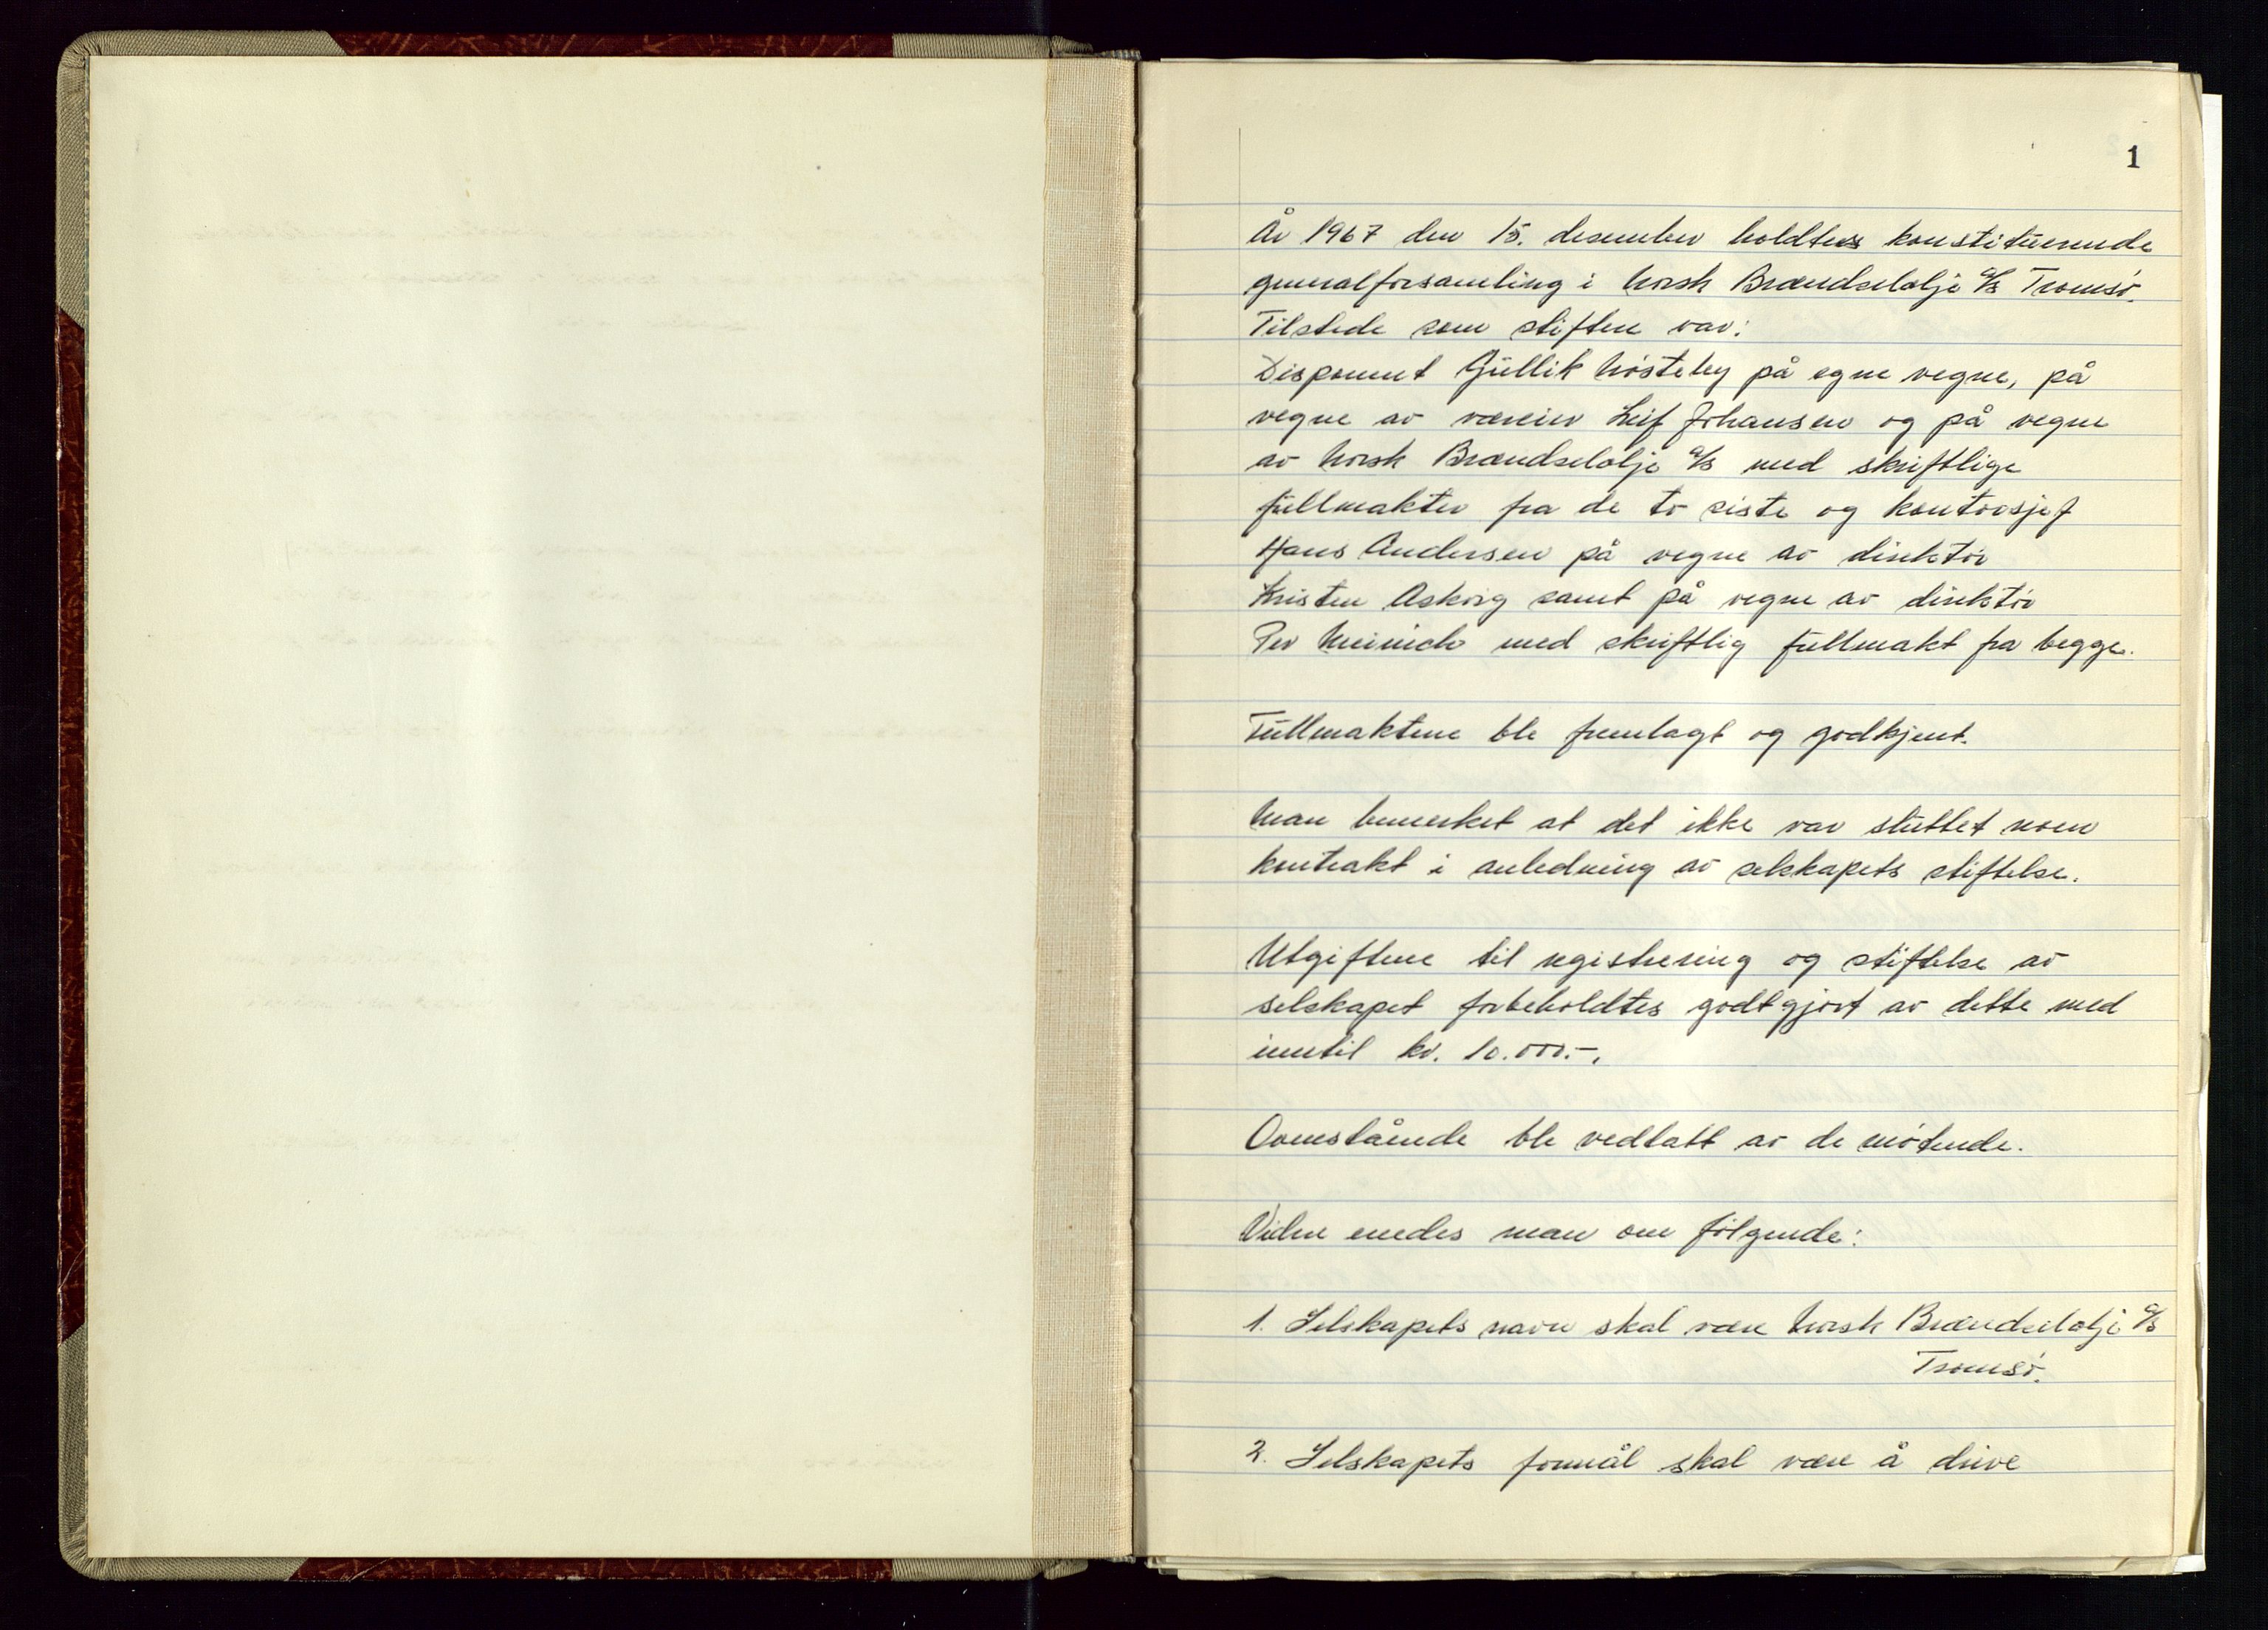 1
År 1967 den 15. desember holdtes konstituerende
generalforsamling i Norsk Brændselolje A/S Tromsø.
Tilstede som stiftere var:
Disponent Gullik Nøsteby på egne vegne, på
vegne av væreier Leif Johansen og på vegne
av Norsk Brændselolje A/S med skriftlige
fullmakter fra de to siste og kontorsjef
Hans Andersen på vegne av direktør
Kristen Askvig samt på vegne av direktør
Per Meinich med skriftlig fullmakt fra begge.
Fullmaktene ble fremlagt og godkjent.
Man bemerket at det ikke var sluttet noen
kontrakt i anledning av selskapets stiftelse.
Utgiftene til registrering og stiftelse av
selskapet forbeholdtes godtgjort av dette med
inntil kr. 10.000.-.
Ovenstående ble vedtatt av de møtende.
Videre enedes man om følgende:
1. Selskapets navn skal være Norsk Brændselolje A/S
Tromsø.
2. Selskapets formål skal være å drive